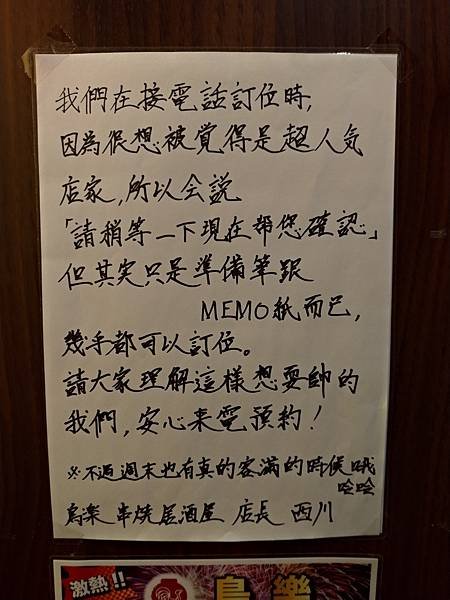 我們在接電話訂位時,
因為很想被覚得是超人気
店家,所以会説
「請稍等一下現在幫您確認」
但其実只是準備筆跟
MEMO紙而已,
幾乎都可以訂位。
請大家理解這樣想耍帥的
我們,安心来電預約!
※不過週末也有真的客滿的時候哦
哈哈
鳥楽 串焼居酒屋 店長 西川
激熱!!
鳥樂